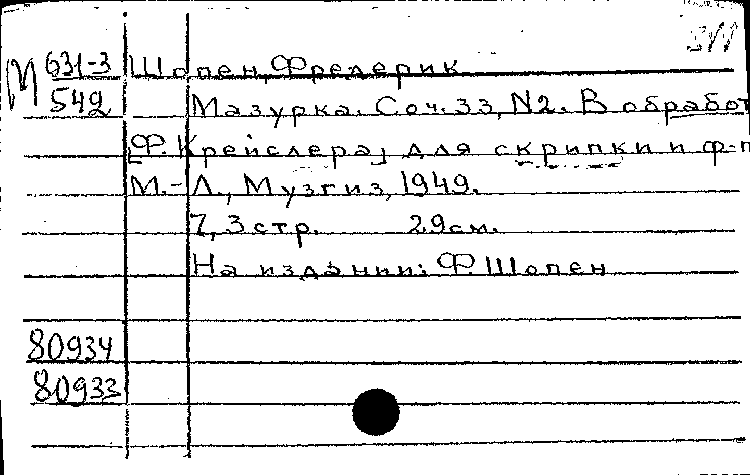 М 631-3 Шопен, Фредерик
542 Мазурка. Соч. 33, N2. В обработ
[Ф. Крейслера] для скрипки и ф-п
М.-Л., Музгиз, 1949.
7, 3 стр. 29 см.
На издании: Ф. Шопен
80934
80933